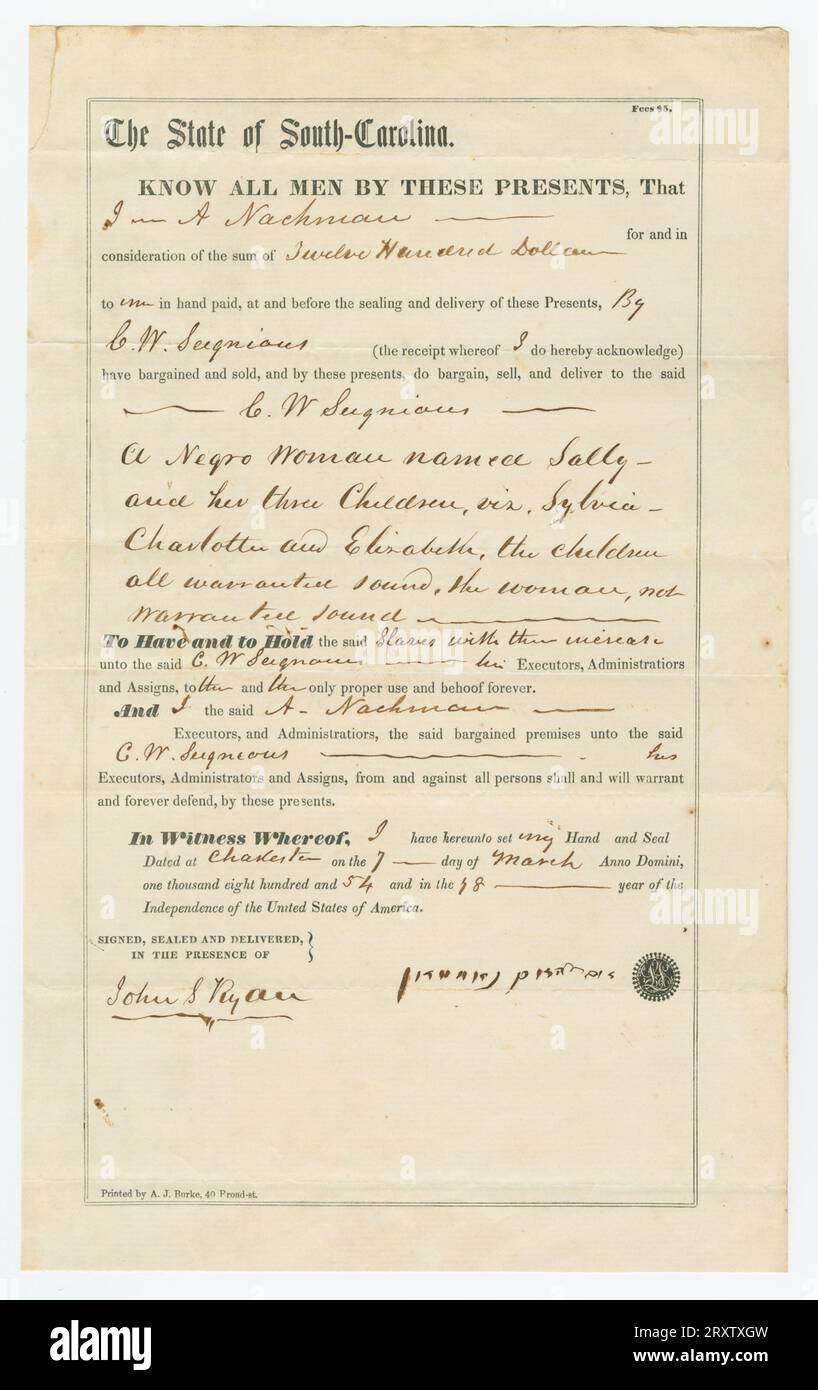 Fees $5.
The State of South-Carolina.
KNOW ALL MEN BY THESE PRESENTS, That
I A Nachman
for and in
consideration of the sum of Twelve Hundred Dollars
to me in hand paid, at and before the sealing and delivery of these Presents, By
C. W. Seignious (the receipt whereof I do hereby acknowledge)
have bargained and sold, and by these presents, do bargain, sell, and deliver to the said
C. W Seignious
A Negro Woman named Sally
and her three Children, viz, Sylvia
Charlotte and Elizabeth, the children
all warranted sound, the woman, not
warranted sound
To Have and to Hold the said Slaves with their increase
unto the said C. W Seignious his Executors, Administratiors
and Assigns, to and only proper use and behoof forever.
And I the said A Nachman
Executors, and Administratiors, the said bargained premises unto the said
C. W. Seignious his
Executors, Administrators and Assigns, from and against all persons shall and will warrant
and forever defend, by these presents.
In Witness Whereof, I have hereunto set my Hand and Seal
Dated at Charleston on the 7 day of March Anno Domini,
one thousand eight hundred and 54 and in the 78 year of the
Independence of the United States of America.
SIGNED, SEALED AND DELIVERED,
IN THE PRESENCE OF
John S Ryan
Printed by A. J. Burke, 40 Broad-st.
alamy
Image ID: 2RXTXGW
www.alamy.com